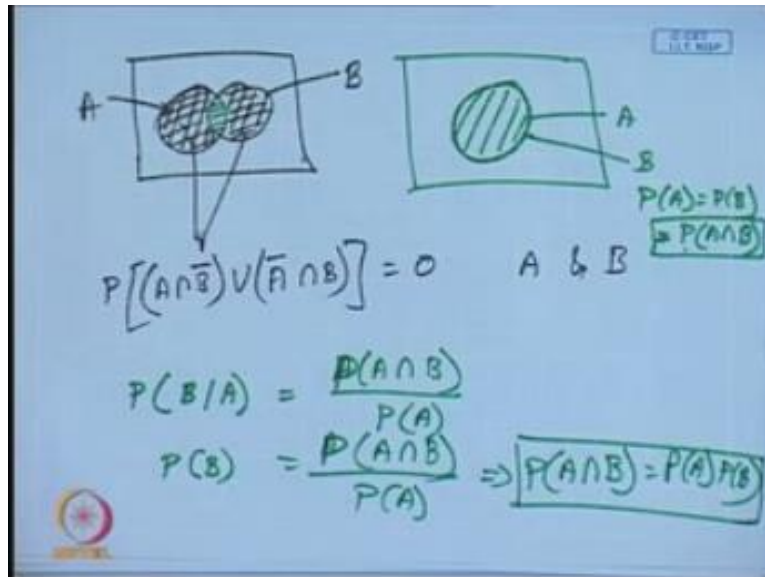 © CET
I.I.T. KGP
A
B
A
B
P(A) = P(B)
= P(A∩B)
P[(A∩B̅)∪(A̅∩B)] = 0
A & B
P(B/A) = P(A∩B) / P(A)
P(B) = P(A∩B) / P(A) ⇒ P(A∩B) = P(A)P(B)